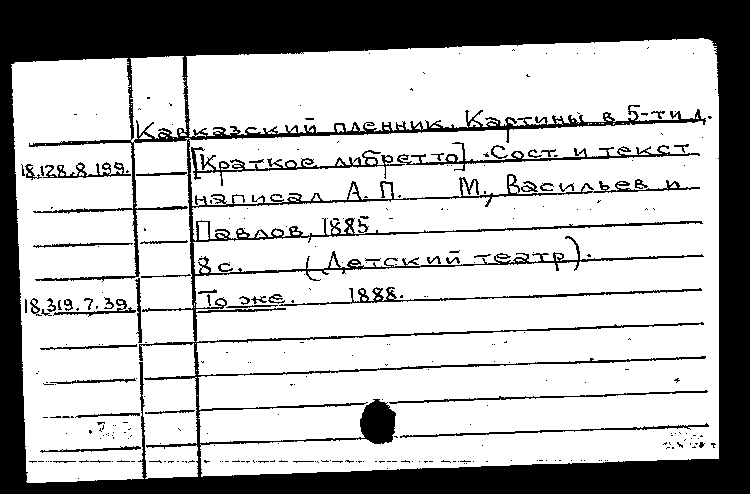 Кавказский пленник. Картины в 5-ти д.
18.128.8.199. [Краткое либретто]. Сост. и текст
написал А. П. М., Васильев и
Павлов, 1885.
8 с. (Детский театр).
18.319.7.39. То же. 1888.